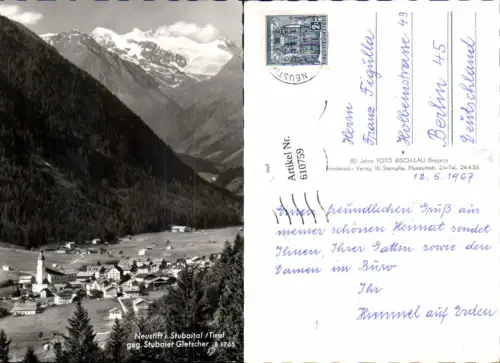 Neustift i. Stubaital / Tirol
geg. Stubaier Gletscher B 1765
Artikel Nr.
610759
Herrn
Franz Figulla
Holbeinstrasse 43
Berlin 45
Deutschland
80 Jahre FOTO RISCH-LAU Bregenz
Innsbruck - Verlag W. Stempfle, Museumstr. 24 - Tel. 24 5 33
12. 5. 1967
Einen freundlichen Gruß aus
meiner schönen Heimat sendet
Ihnen, Ihrer Gattin sowie den
Damen im Büro
Ihr
Himmel auf Erden